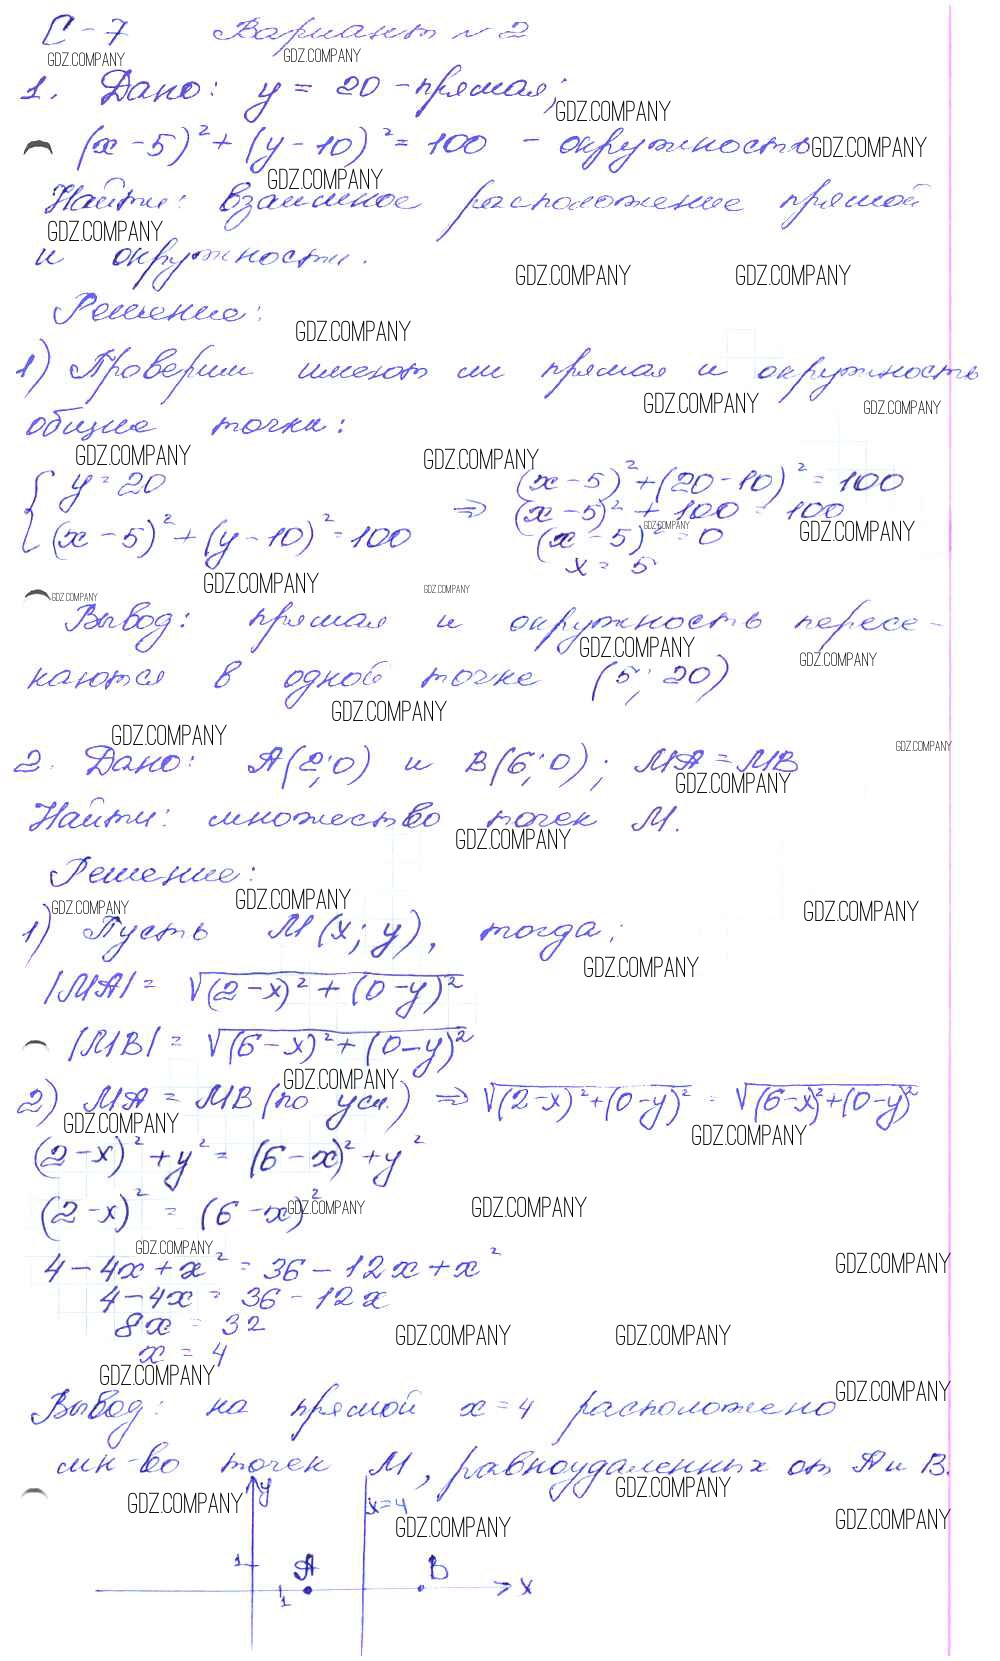 С-7 Вариант №2
GDZ.COMPANY GDZ.COMPANY
1. Дано: y = 20 - прямая;
GDZ.COMPANY
(x-5)² + (y-10)² = 100 - окружность
GDZ.COMPANY
GDZ.COMPANY
Найти: взаимное расположение прямой
GDZ.COMPANY
и окружности.
GDZ.COMPANY GDZ.COMPANY
Решение:
GDZ.COMPANY
1) Проверим имеют ли прямая и окружность
GDZ.COMPANY GDZ.COMPANY
общие точки:
GDZ.COMPANY GDZ.COMPANY
{ y = 20
(x-5)² + (y-10)² = 100
⇒ (x-5)² + (20-10)² = 100
(x-5)² + 100 = 100
GDZ.COMPANY GDZ.COMPANY
(x-5)² = 0
x = 5
GDZ.COMPANY GDZ.COMPANY
GDZ.COMPANY
Вывод: прямая и окружность пересе-
GDZ.COMPANY GDZ.COMPANY
каются в одной точке (5; 20)
GDZ.COMPANY
GDZ.COMPANY GDZ.COMPANY
2. Дано: A(2;0) и B(6;0); MA = MB
GDZ.COMPANY
Найти: множество точек M.
GDZ.COMPANY
Решение:
GDZ.COMPANY GDZ.COMPANY GDZ.COMPANY
1) Пусть M(x; y), тогда;
GDZ.COMPANY
|MA| = √((2-x)² + (0-y)²)
|MB| = √((6-x)² + (0-y)²)
GDZ.COMPANY
2) MA = MB (по усл.) ⇒ √((2-x)² + (0-y)²) = √((6-x)² + (0-y)²)
GDZ.COMPANY GDZ.COMPANY
(2-x)² + y² = (6-x)² + y²
(2-x)² = (6-x)²
GDZ.COMPANY GDZ.COMPANY
GDZ.COMPANY
4 - 4x + x² = 36 - 12x + x²
GDZ.COMPANY
4 - 4x = 36 - 12x
8x = 32
GDZ.COMPANY GDZ.COMPANY
x = 4
GDZ.COMPANY GDZ.COMPANY
Вывод: на прямой x = 4 расположено
мн-во точек M, равноудаленных от A и B.
GDZ.COMPANY GDZ.COMPANY
y x=4
GDZ.COMPANY GDZ.COMPANY
1 A B
1 x